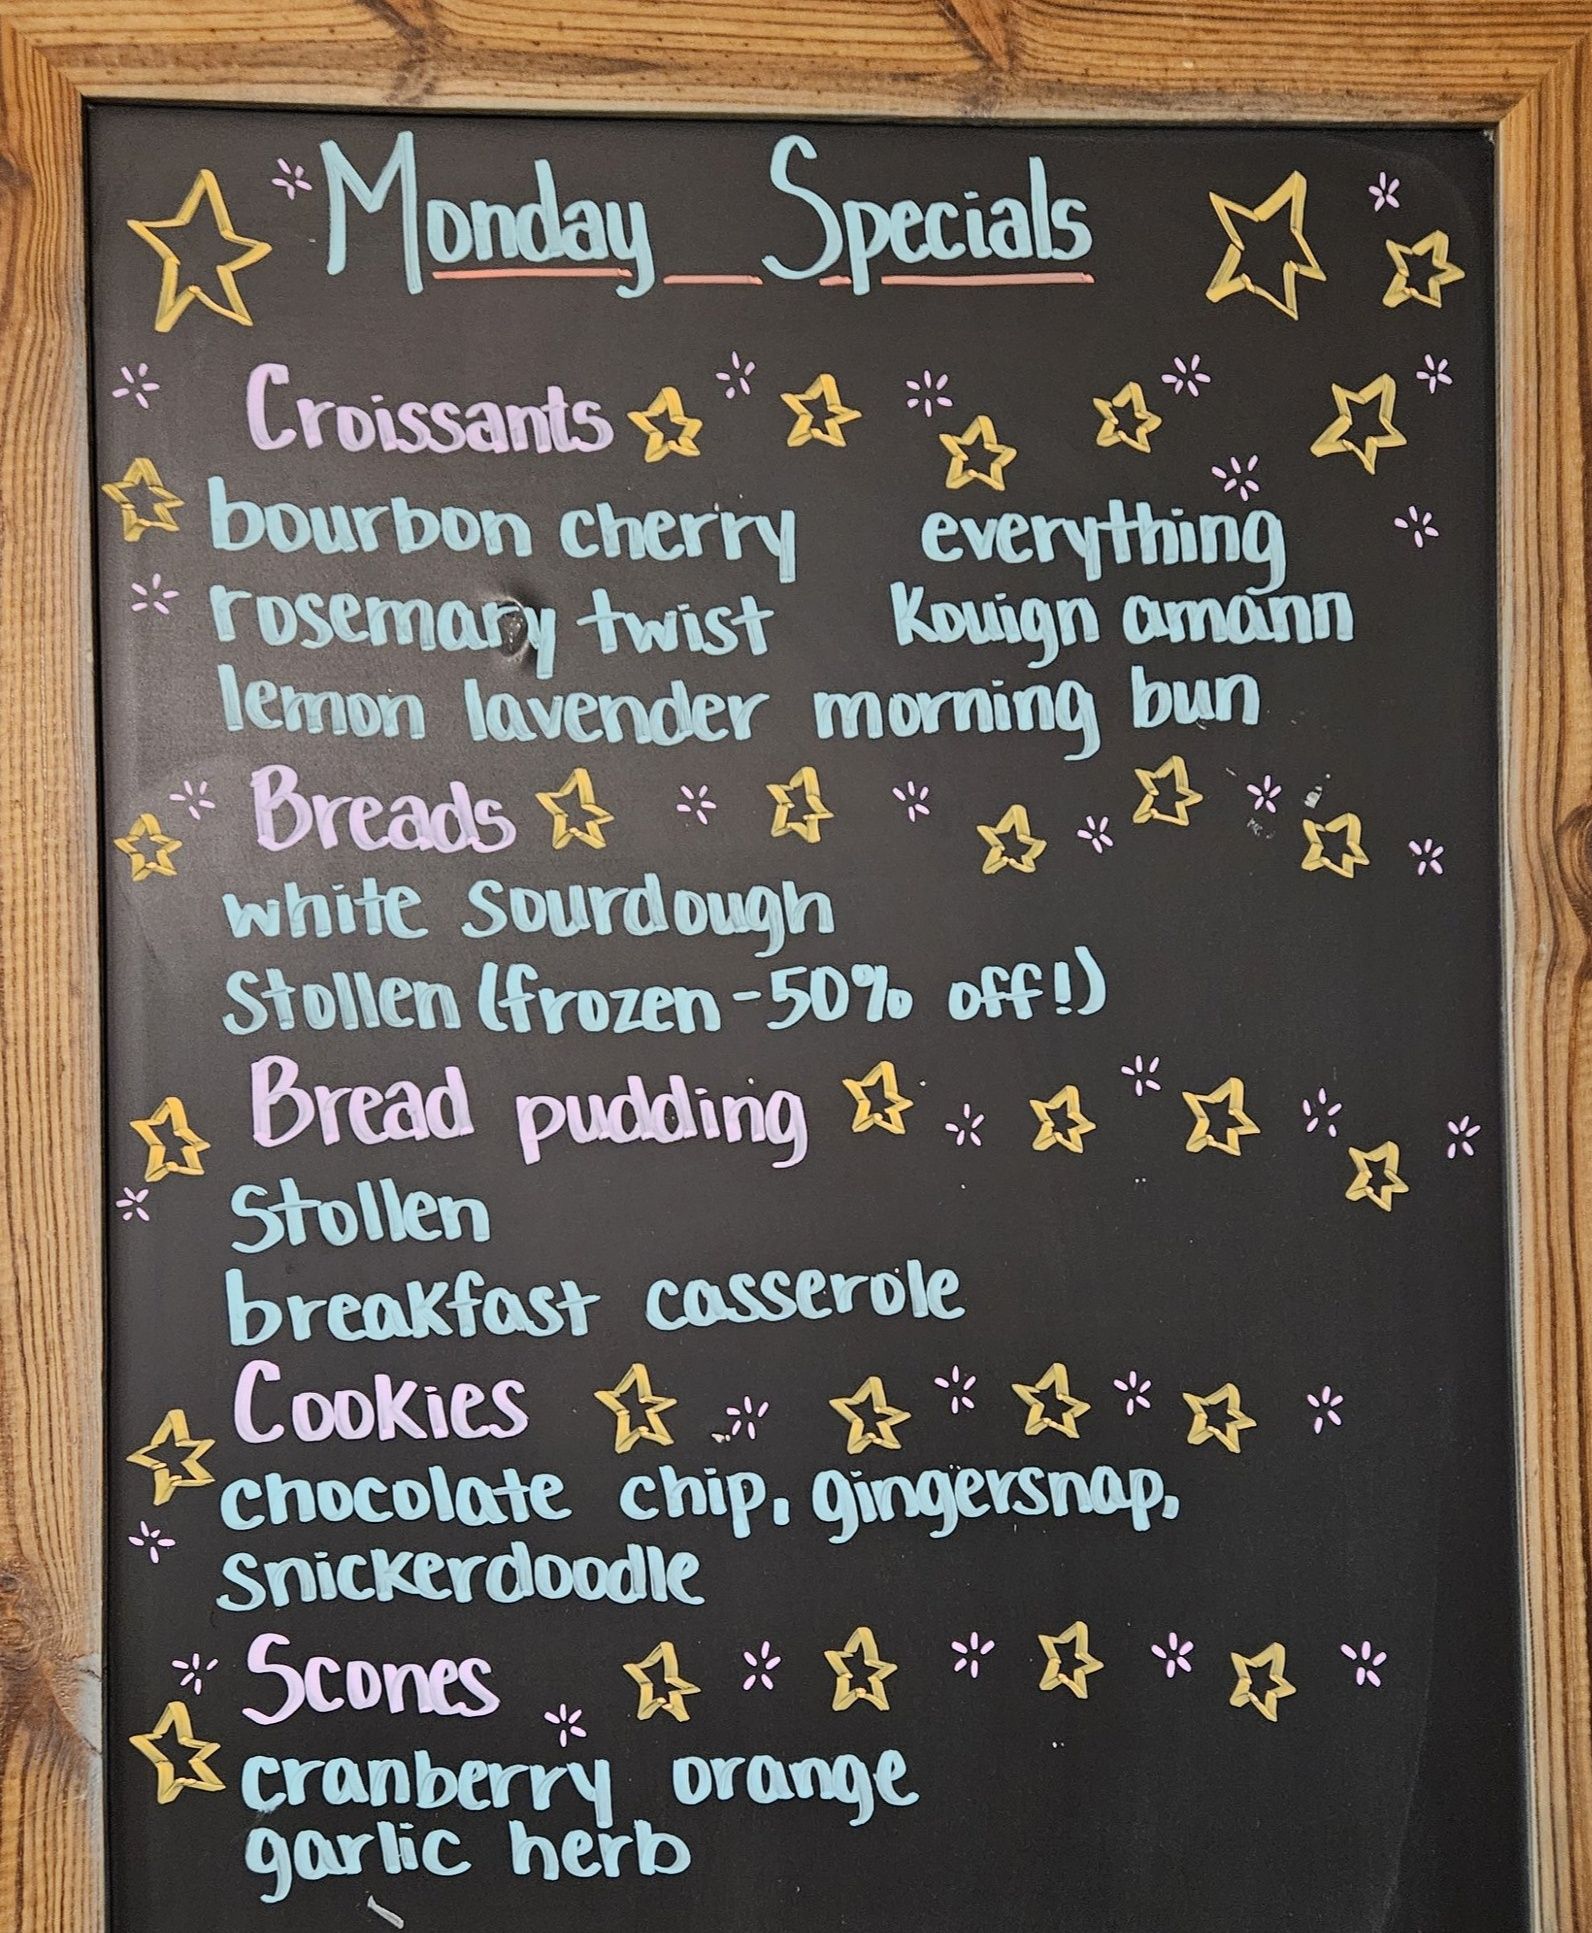 Monday Specials
Croissants
bourbon cherry everything
rosemary twist Kouign amann
lemon lavender morning bun
Breads
white sourdough
Stollen (frozen - 50% off!)
Bread pudding
Stollen
breakfast casserole
Cookies
chocolate chip, gingersnap,
snickerdoodle
Scones
cranberry orange
garlic herb